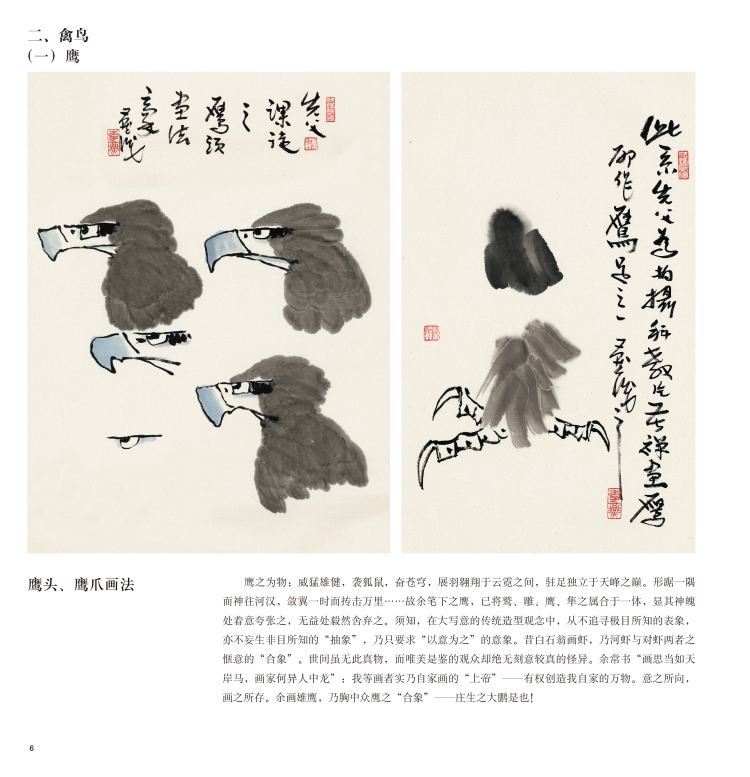 二、禽鸟
(一) 鹰
先父
课徒
之
鹰头
画法
此系先父为拍摄科教片苦禅画鹰
所作鹰足之一
鹰头、鹰爪画法
鹰之为物：威猛雄健，袭狐鼠，奋苍穹，展羽翱翔于云霓之间，驻足独立于天峰之巅。形踞一隅
而神往河汉，敛翼一时而抟击万里……故余笔下之鹰，已将鹫、雕、鹰、隼之属合于一体，显其神魄
处着意夸张之，无益处毅然舍弃之。须知，在大写意的传统造型观念中，从不追寻极目所知的表象，
亦不妄生非目所知的“抽象”，乃只要求“以意为之”的意象。昔白石翁画虾，乃河虾与对虾两者之
惬意的“合象”。世间虽无此真物，而唯美是鉴的观众却绝无刻意较真的怪异。余常书“画思当如天
岸马，画家何异人中龙”：我等画者实乃自家画的“上帝”——有权创造我自家的万物。意之所向，
画之所存。余画雄鹰，乃胸中众鹰之“合象”——庄生之大鹏是也！
6